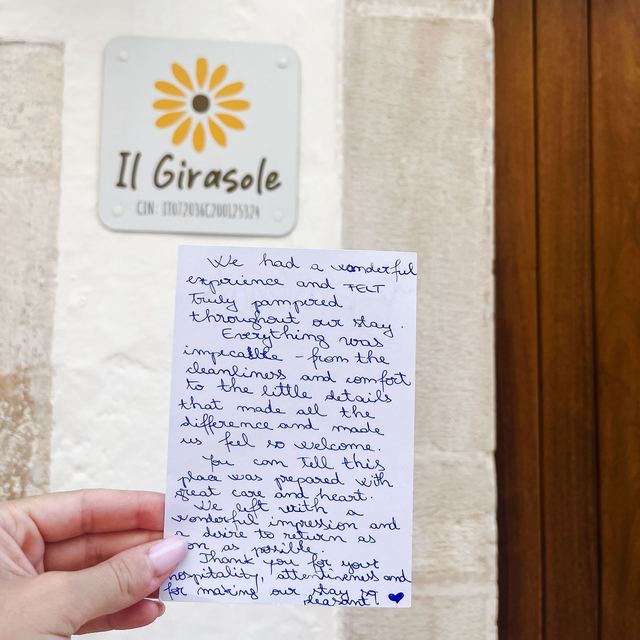 Il Girasole
CIN: IT072036C200125324
We had a wonderful
experience and FELT
truly pampered
throughout our stay.
Everything was
impecable - from the
cleanliness and comfort
to the little details
that made all the
difference and made
us feel so welcome.
You can tell this
place was prepared with
great care and heart.
We left with a
wonderful impression and
a desire to return as
on as possible.
Thank you for your
hospitality, attentiveness and
for making our stay so
pleasant.